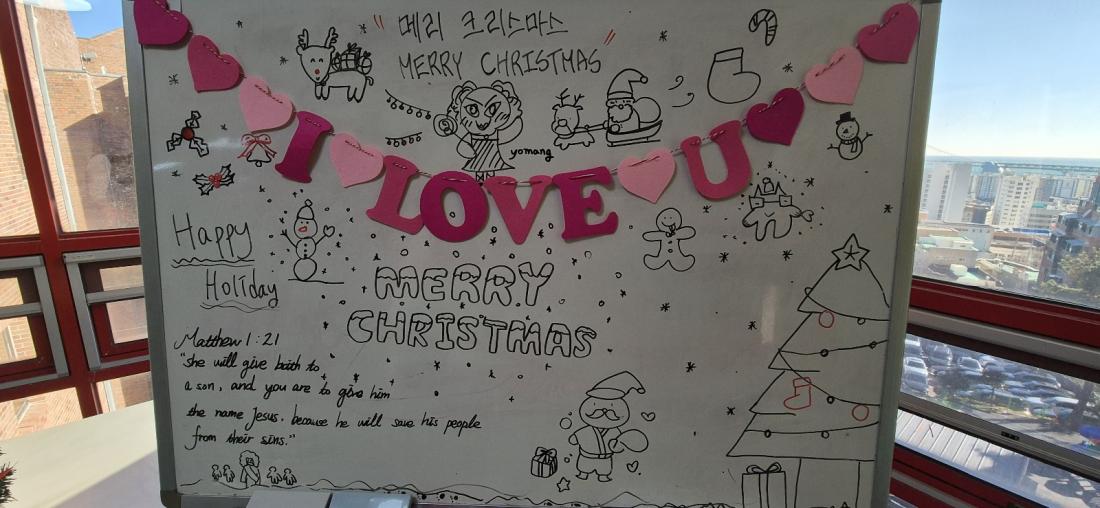 "메리 크리스마스
MERRY CHRISTMAS"
yomang
I LOVE U
Happy
Holiday
MERRY
CHRISTMAS
Matthew 1:21
"She will give birth to
a son, and you are to give him
the name Jesus, because he will save his people
from their sins."